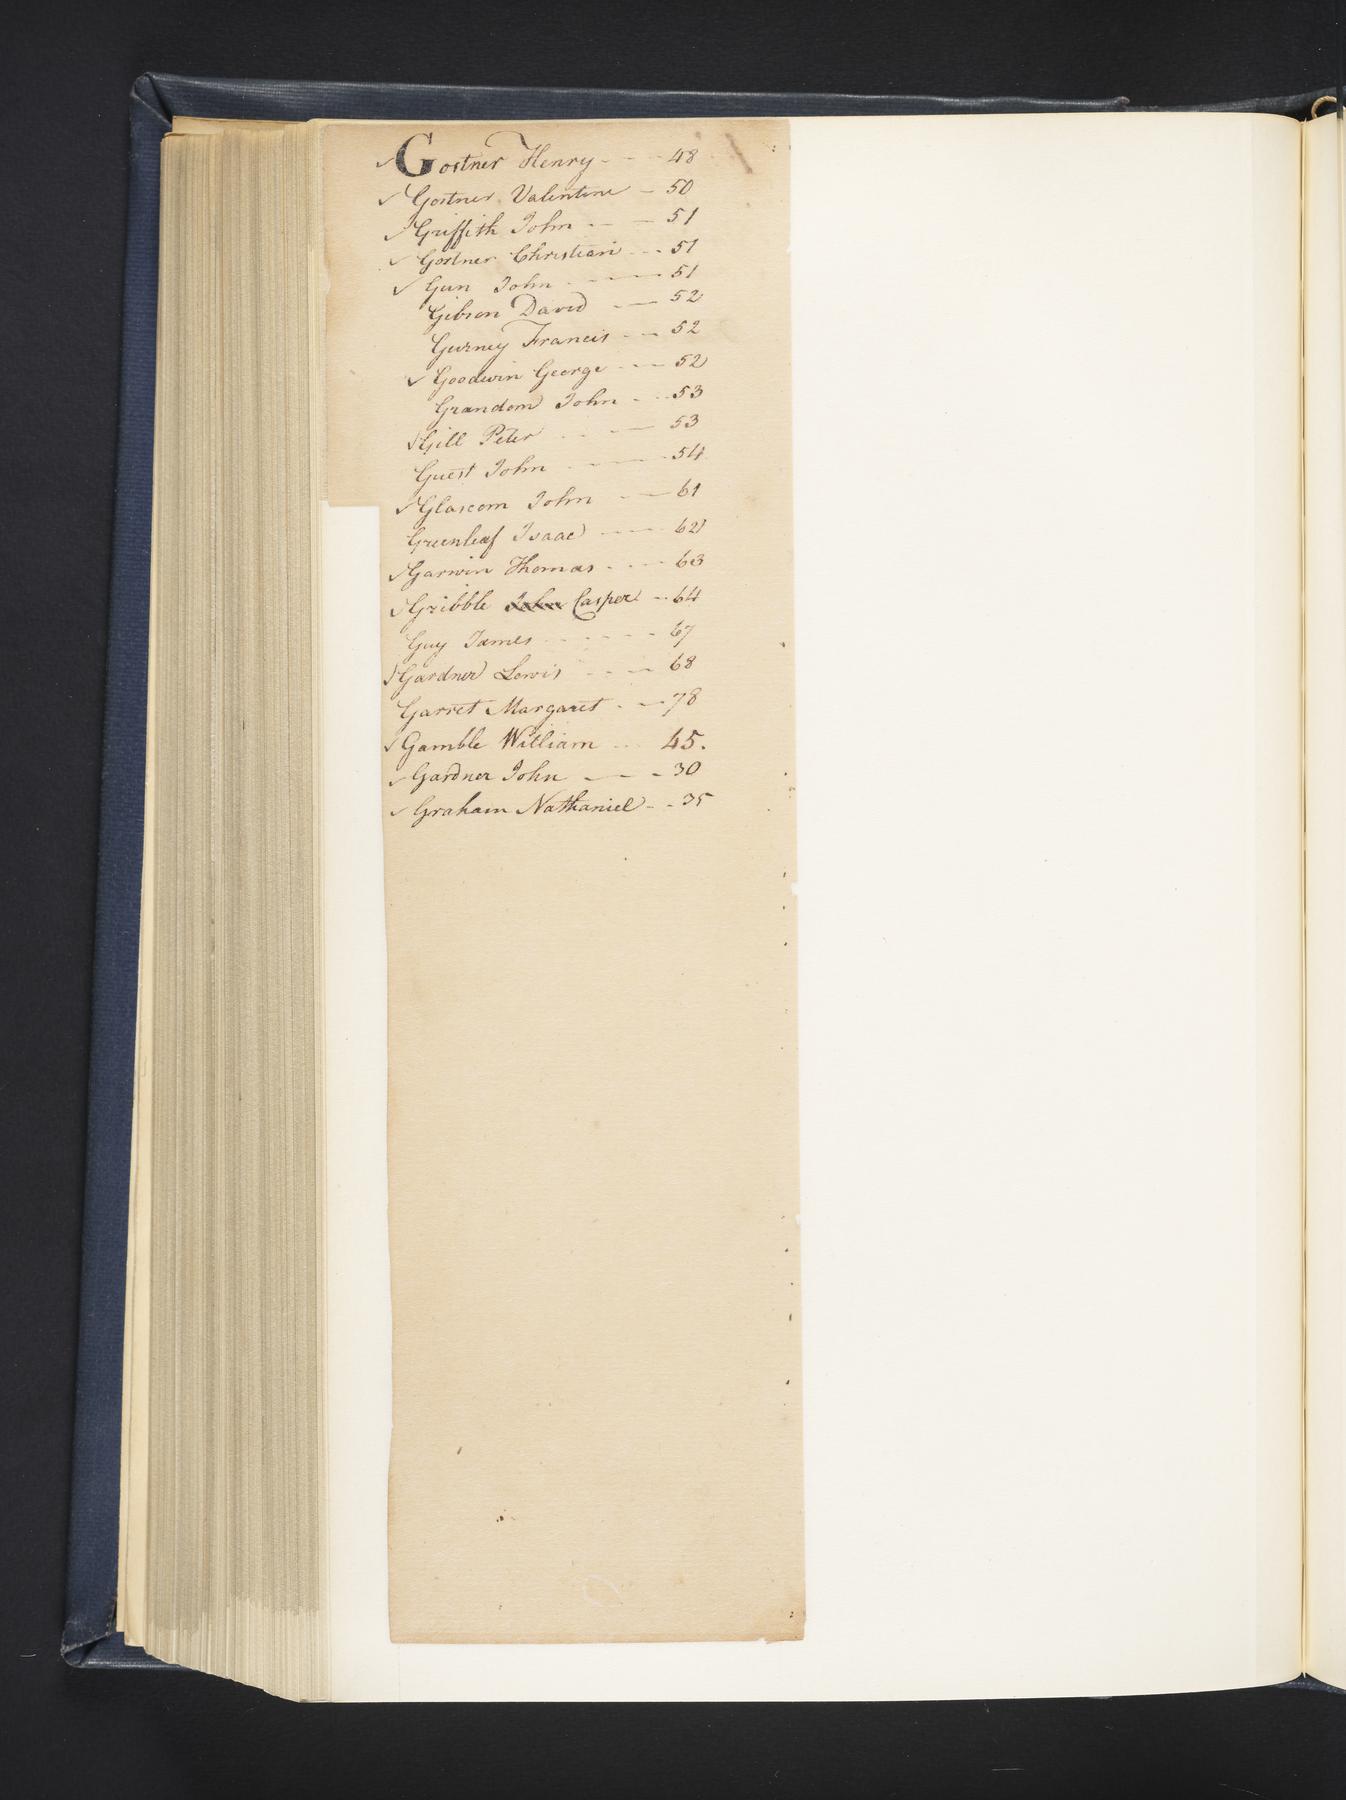 ✓ Gostner Henry - - - 48
✓ Gostner Valentine - 50
✓ Griffith John - - - 51
✓ Gostner Christian - - - 51
✓ Gun John - - - 51
Gibson David - - 52
Gurney Francis - - 52
✓ Goodwin George - - - 52
Grandom John - - - 53
✓ Gill Peter - - - 53
Guest John - - - 54
✓ Glascom John - - 61
Greenleaf Isaac - - - 62
✓ Garwin Thomas - - - 63
✓ Gribble ~~John~~ Casper - - 64
Guy James - - - - - 67
✓ Gardner Lewis - - - 68
Garret Margaret - - 78
✓ Gamble William - - - 45.
✓ Gardner John - - - 30
✓ Graham Nathaniel - - 35